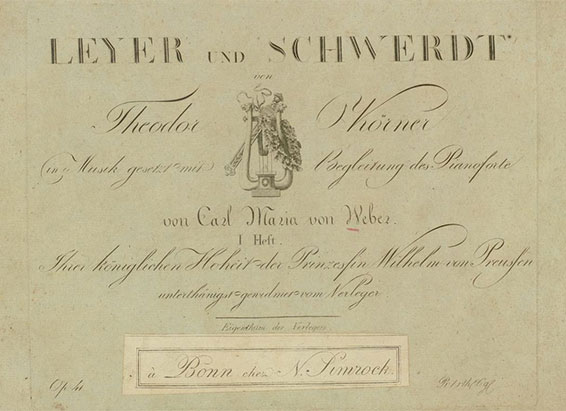 LEYER UND SCHWERDT
von
Theodor Körner
in Musik gesetzt mit Begleitung des Pianoforte
von Carl Maria von Weber.
I Heft.
Ihrer königlichen Hoheit der Prinzessin Wilhelm von Preussen
unterthänigst gewidmet vom Verleger
Eigenthum der Verlegers
à Bonn chez N. Simrock.
Op. 41